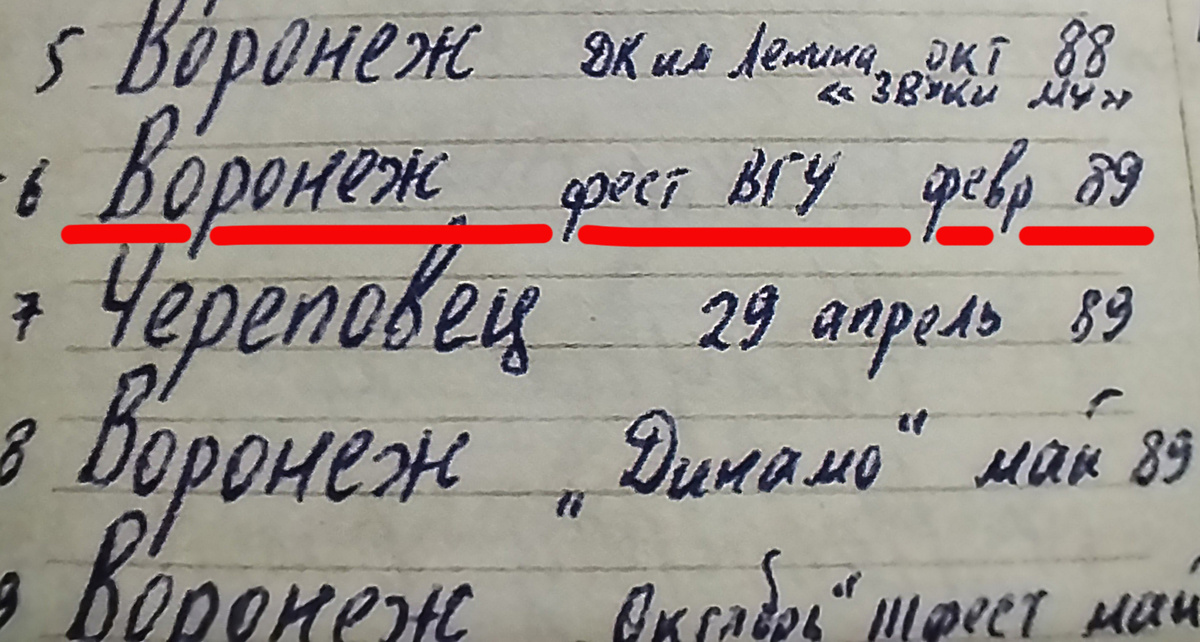 5 Воронеж ДК им Ленина окт 88
« Звуки Му»
6 Воронеж фест ВГУ февр 89
7 Череповец 29 апрель 89
8 Воронеж „Динамо“ май 89
9 Воронеж Октябрь“ III фест май